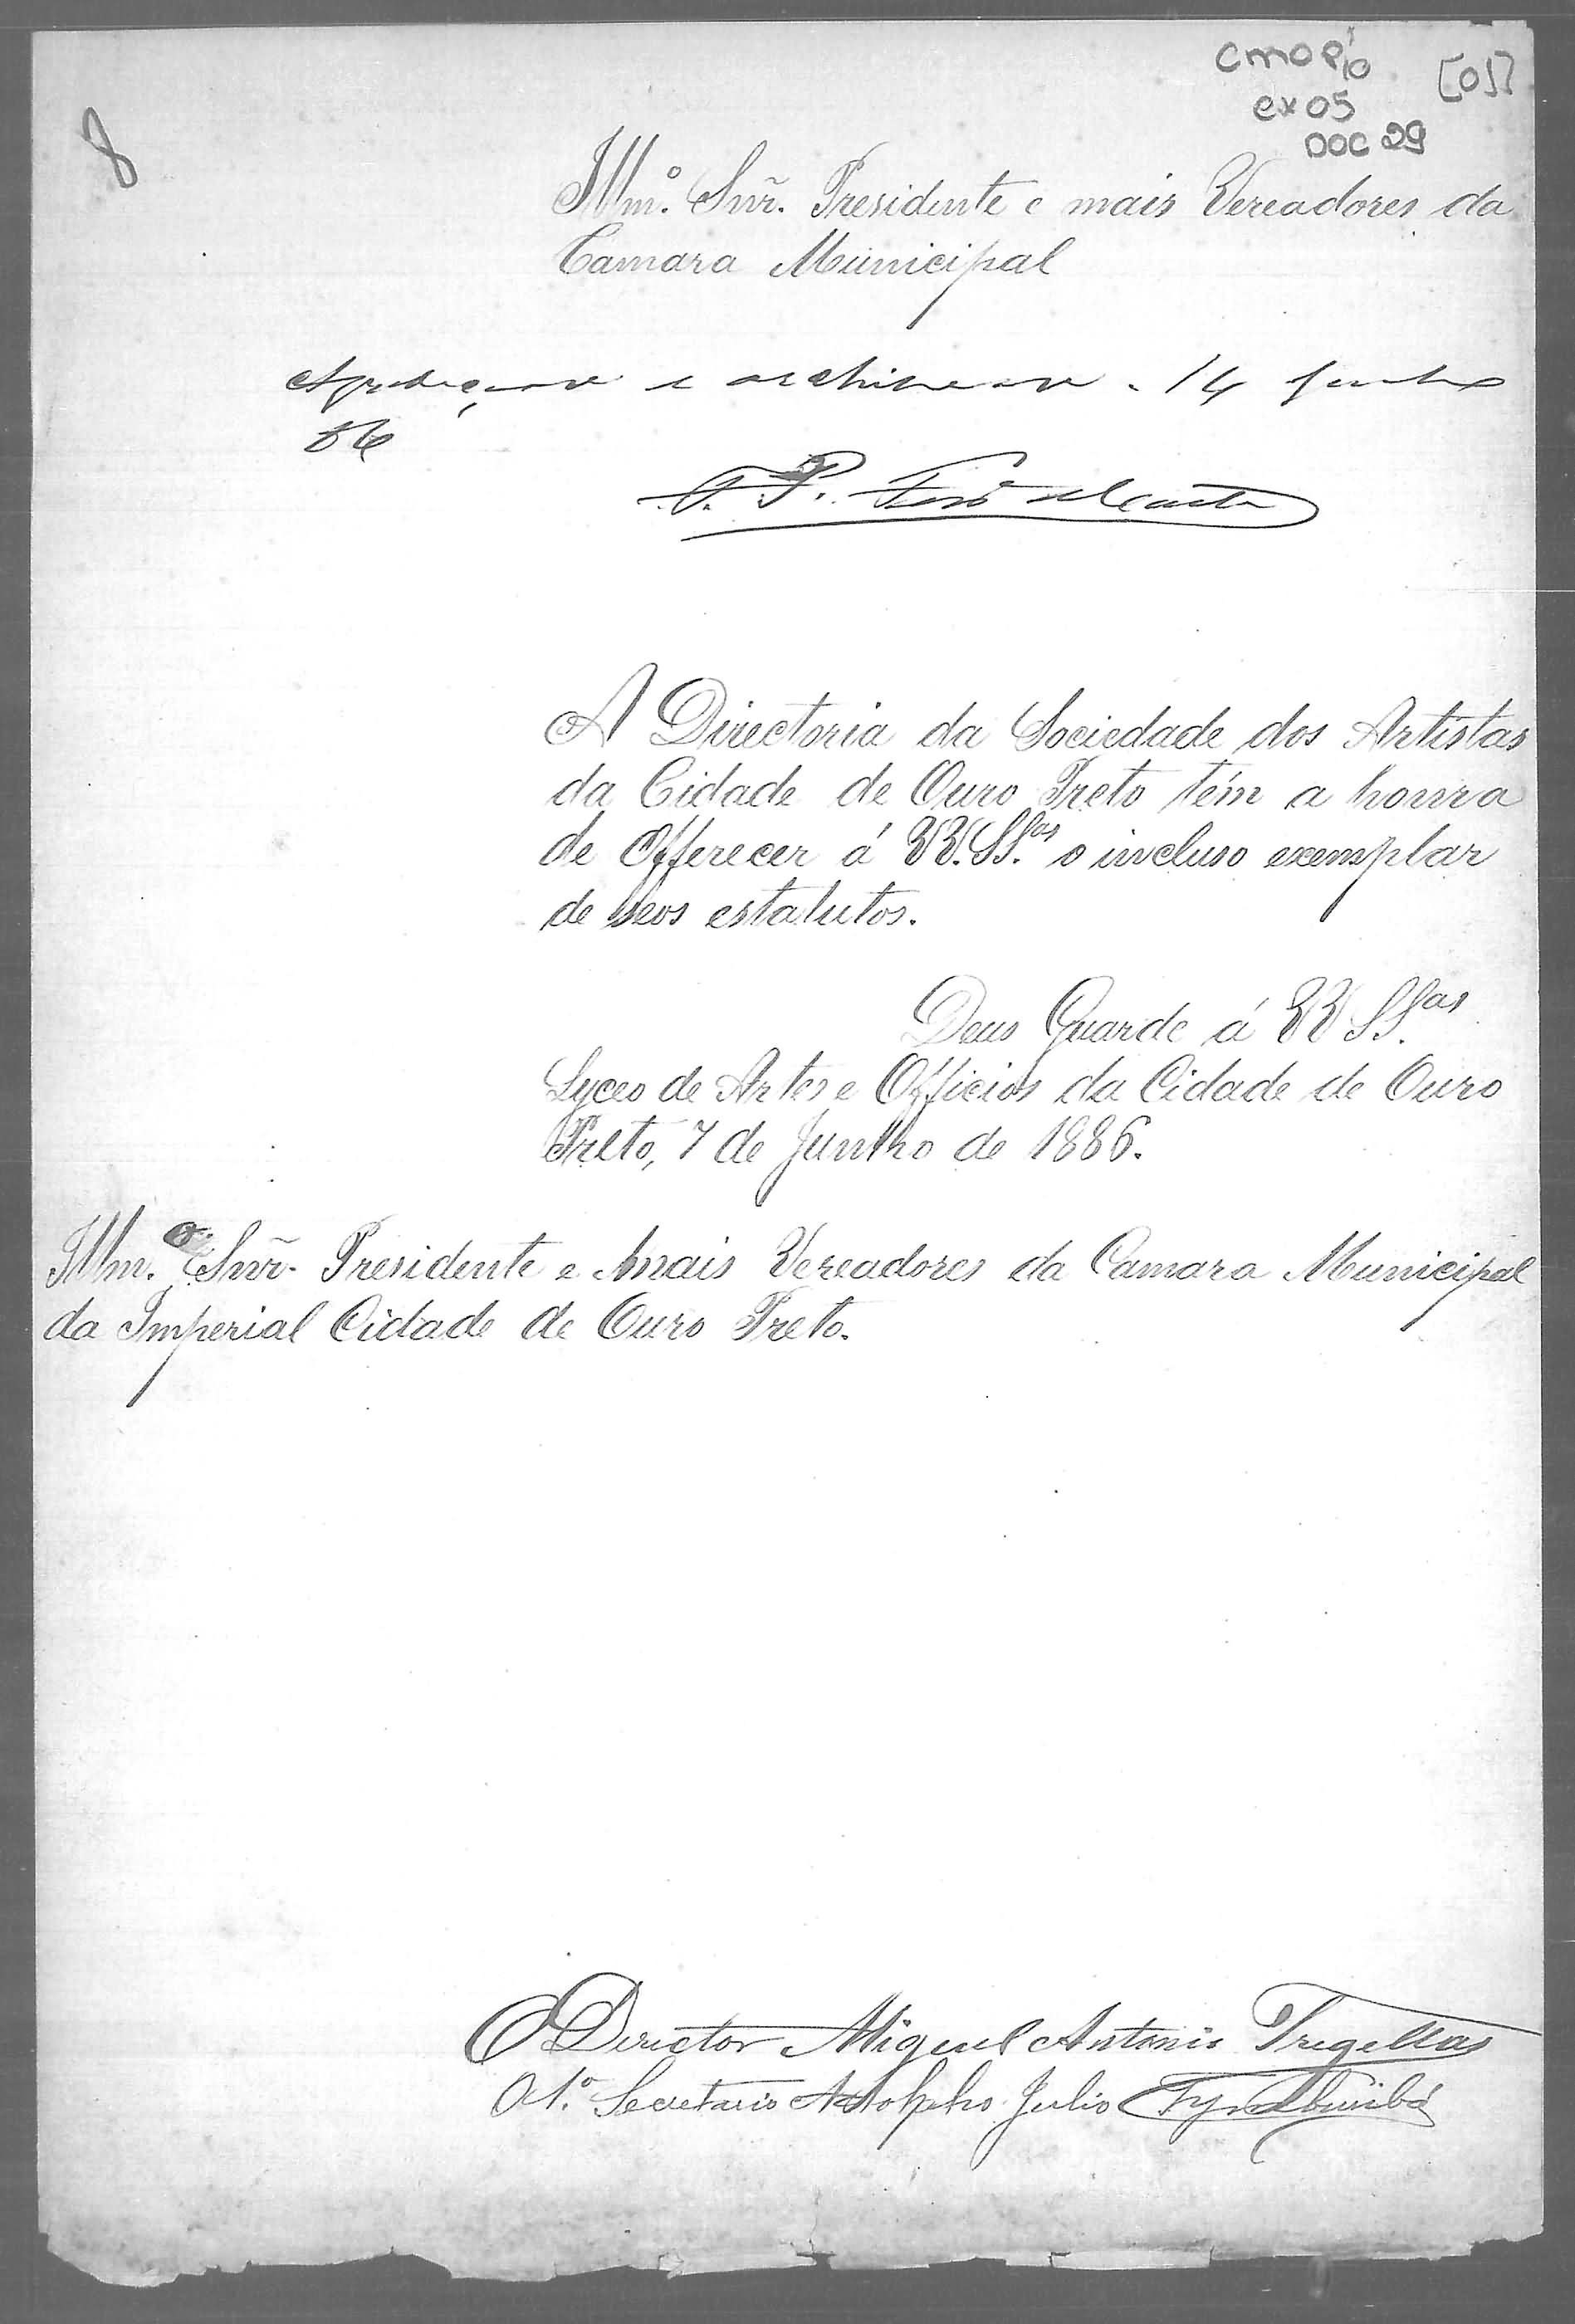 CMOP
10
[01]
cx05
DOC 29
8
Illmº. Snr̃. Presidente e mais Vereadores da
Camara Municipal
e archive-se. 14 Junho
86
A Directoria da Sociedade dos Artistas
da Cidade de Ouro Preto tém a honra
de Offerecer á VV. SSªs o incluso exemplar
de seos estatutos.
Deus Guarde á VV SSªs.
Lyceo de Artes e Officios da Cidade de Ouro
Preto, 7 de Junho de 1886.
Illmº. Snr̃. Presidente e mais Vereadores da Camara Municipal
da Imperial Cidade de Ouro Preto.
O Director Miguel Antonio Tregellas
O 1.º Secretario Adolpho Julio